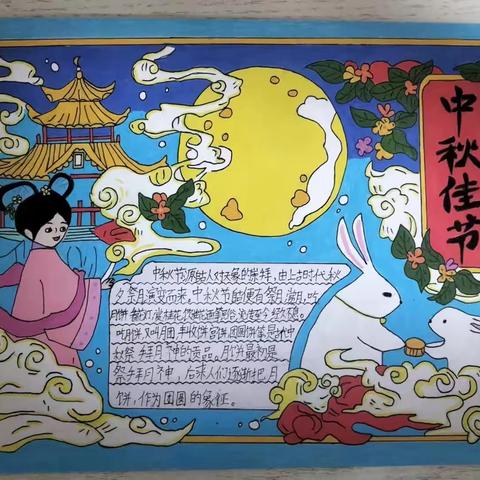 中秋佳节
中秋节源自人对天象的崇拜，由上古时代秋
夕祭月演变而来。中秋节自古便有祭月、赏月、吃
月饼、看花灯、赏桂花、饮桂花酒等民俗，流传至今，经久不息。
吃月饼，又叫月团、丰收饼、宫饼、团圆饼等是古代中
秋祭拜月神的贡品。月饼最初是
祭拜月神，后来人们逐渐把月
饼，作为团圆的象征。